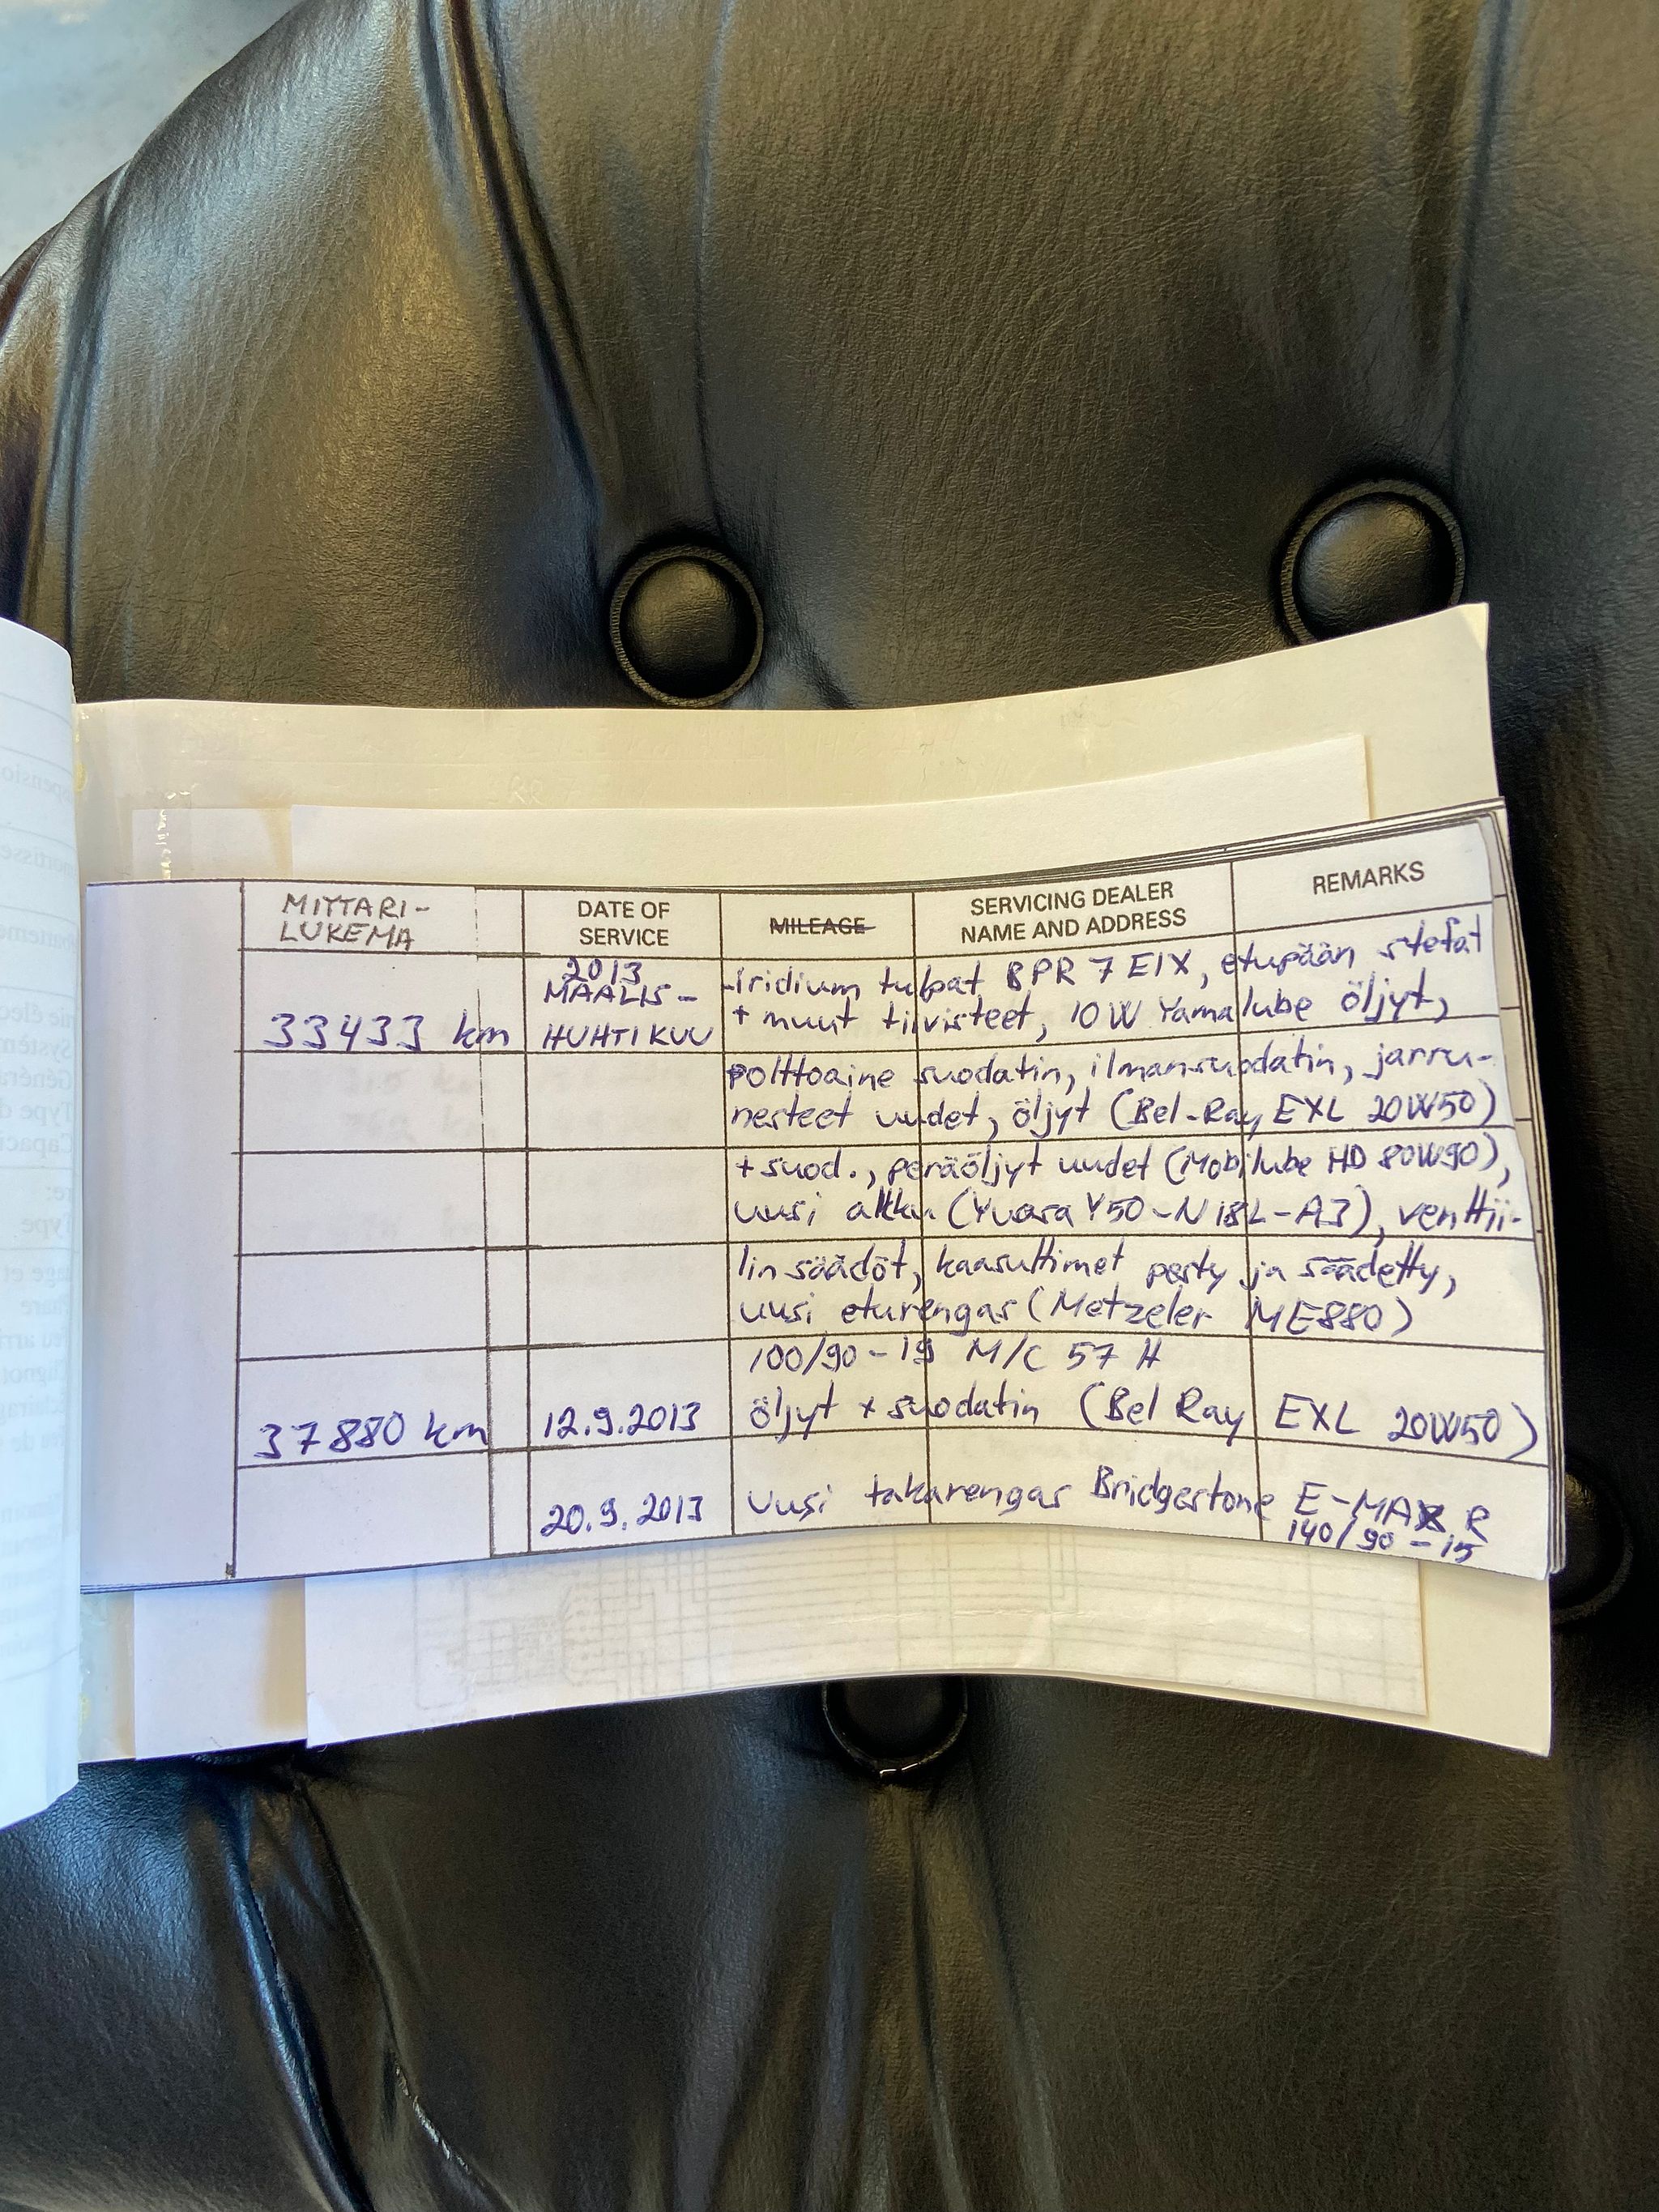 MITTARI-
LUKEMA
DATE OF
SERVICE
MILEAGE
SERVICING DEALER
NAME AND ADDRESS
REMARKS
33433 km
2013
MAALIS-
HUHTIKUU
-Iridium tulpat BPR 7 EIX, etupään stefat
+ muut tiivisteet, 10W Yamalube öljyt,
polttoaine suodatin, ilmansuodatin, jarru-
nesteet uudet, öljyt (Bel-Ray EXL 20W50)
+suod., peräöljyt uudet (Mobilube HD 80W90),
uusi akku (Yuasa Y50-N18L-A3), venttii-
lin säädöt, kaasuttimet pesty ja säädetty,
uusi eturengas (Metzeler ME880)
100/90-19 M/C 57 H
37880 km
12.9.2013
öljyt + suodatin (Bel Ray EXL 20W50)
20.9.2013
Uusi takarengas Bridgestone E-MAX R
140/90-15